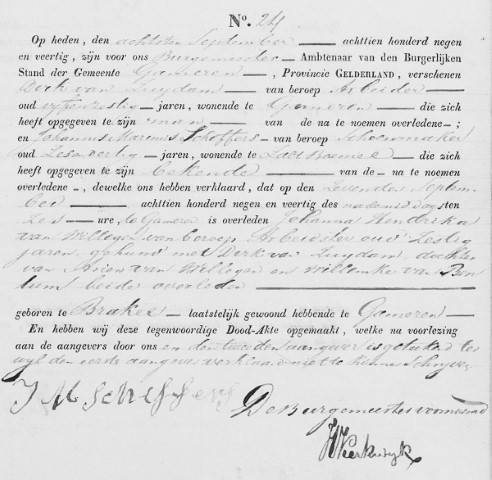 N°. 24
Op heden, den achtsten September achttien honderd negen
en veertig, zijn voor ons Burgemeester Ambtenaar van den Burgerlijken
Stand der Gemeente Gameren, Provincie GELDERLAND, verschenen
Dirk van Tuijdam van beroep Arbeider
oud jaren, wonende te Gameren die zich
heeft opgegeven te zijn man van de na te noemen overledene;
en Johannes Marinus Scheffers van beroep Schoenmaker
oud Zesendertig jaren, wonende te Zalt Boemel die zich
heeft opgegeven te zijn bekende van de na te noemen
overledene, dewelke ons hebben verklaard, dat op den Zevenden Septem
ber achttien honderd negen en veertig des nademiddags ten
Zes ure, te Gameren is overleden Johanna Hendrika
van Willegen van beroep Arbeidster oud Zestig
jaren, gehuwd met Dirk van Tuijdam, dochter
van Ariën van Willegen en Willemke van Ben
tum beide overleden
geboren te Brakel laatstelijk gewoond hebbende te Gameren
En hebben wij deze tegenwoordige Dood-Akte opgemaakt, welke na voorlezing
aan de aangevers door ons en den tweeden aangever is geteekend ter
wijl den eerste aangever verklaarde niet te kunne Schrijven
J M Scheffers
De Burgemeester voornoemd